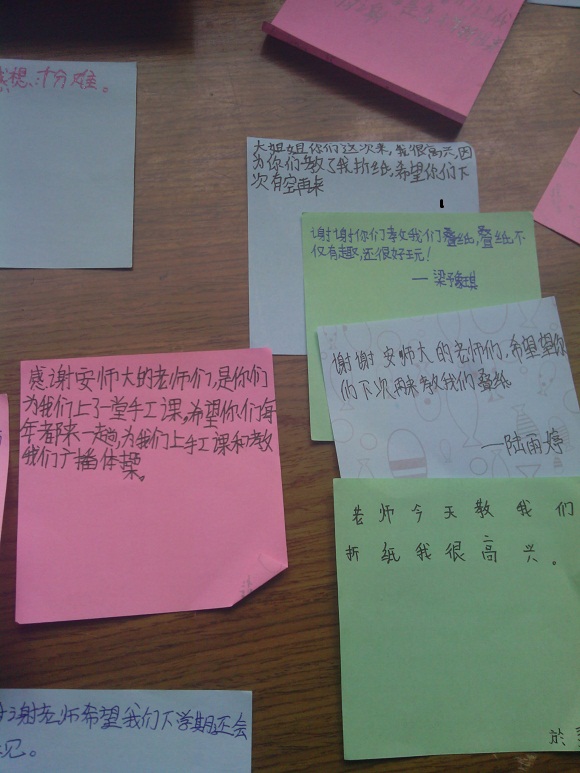 感想,十分难。
大姐姐你们这次来,我很高兴,因
为你们教了我折纸,希望你们下
次有空再来
谢谢你们教我们叠纸,叠纸不
仅有趣,还很好玩!
谢谢 安师大的老师们,希望望你
们下次再来教我们叠纸
——陆雨婷
感谢安师大的老师们,是你们
为我们上了一堂手工课,希望你们每
年都来一趟,为我们上手工课和教
我们广播体操。
老师今天教我们
折纸我很高兴。
谢老师希望我们下学期还会
见。